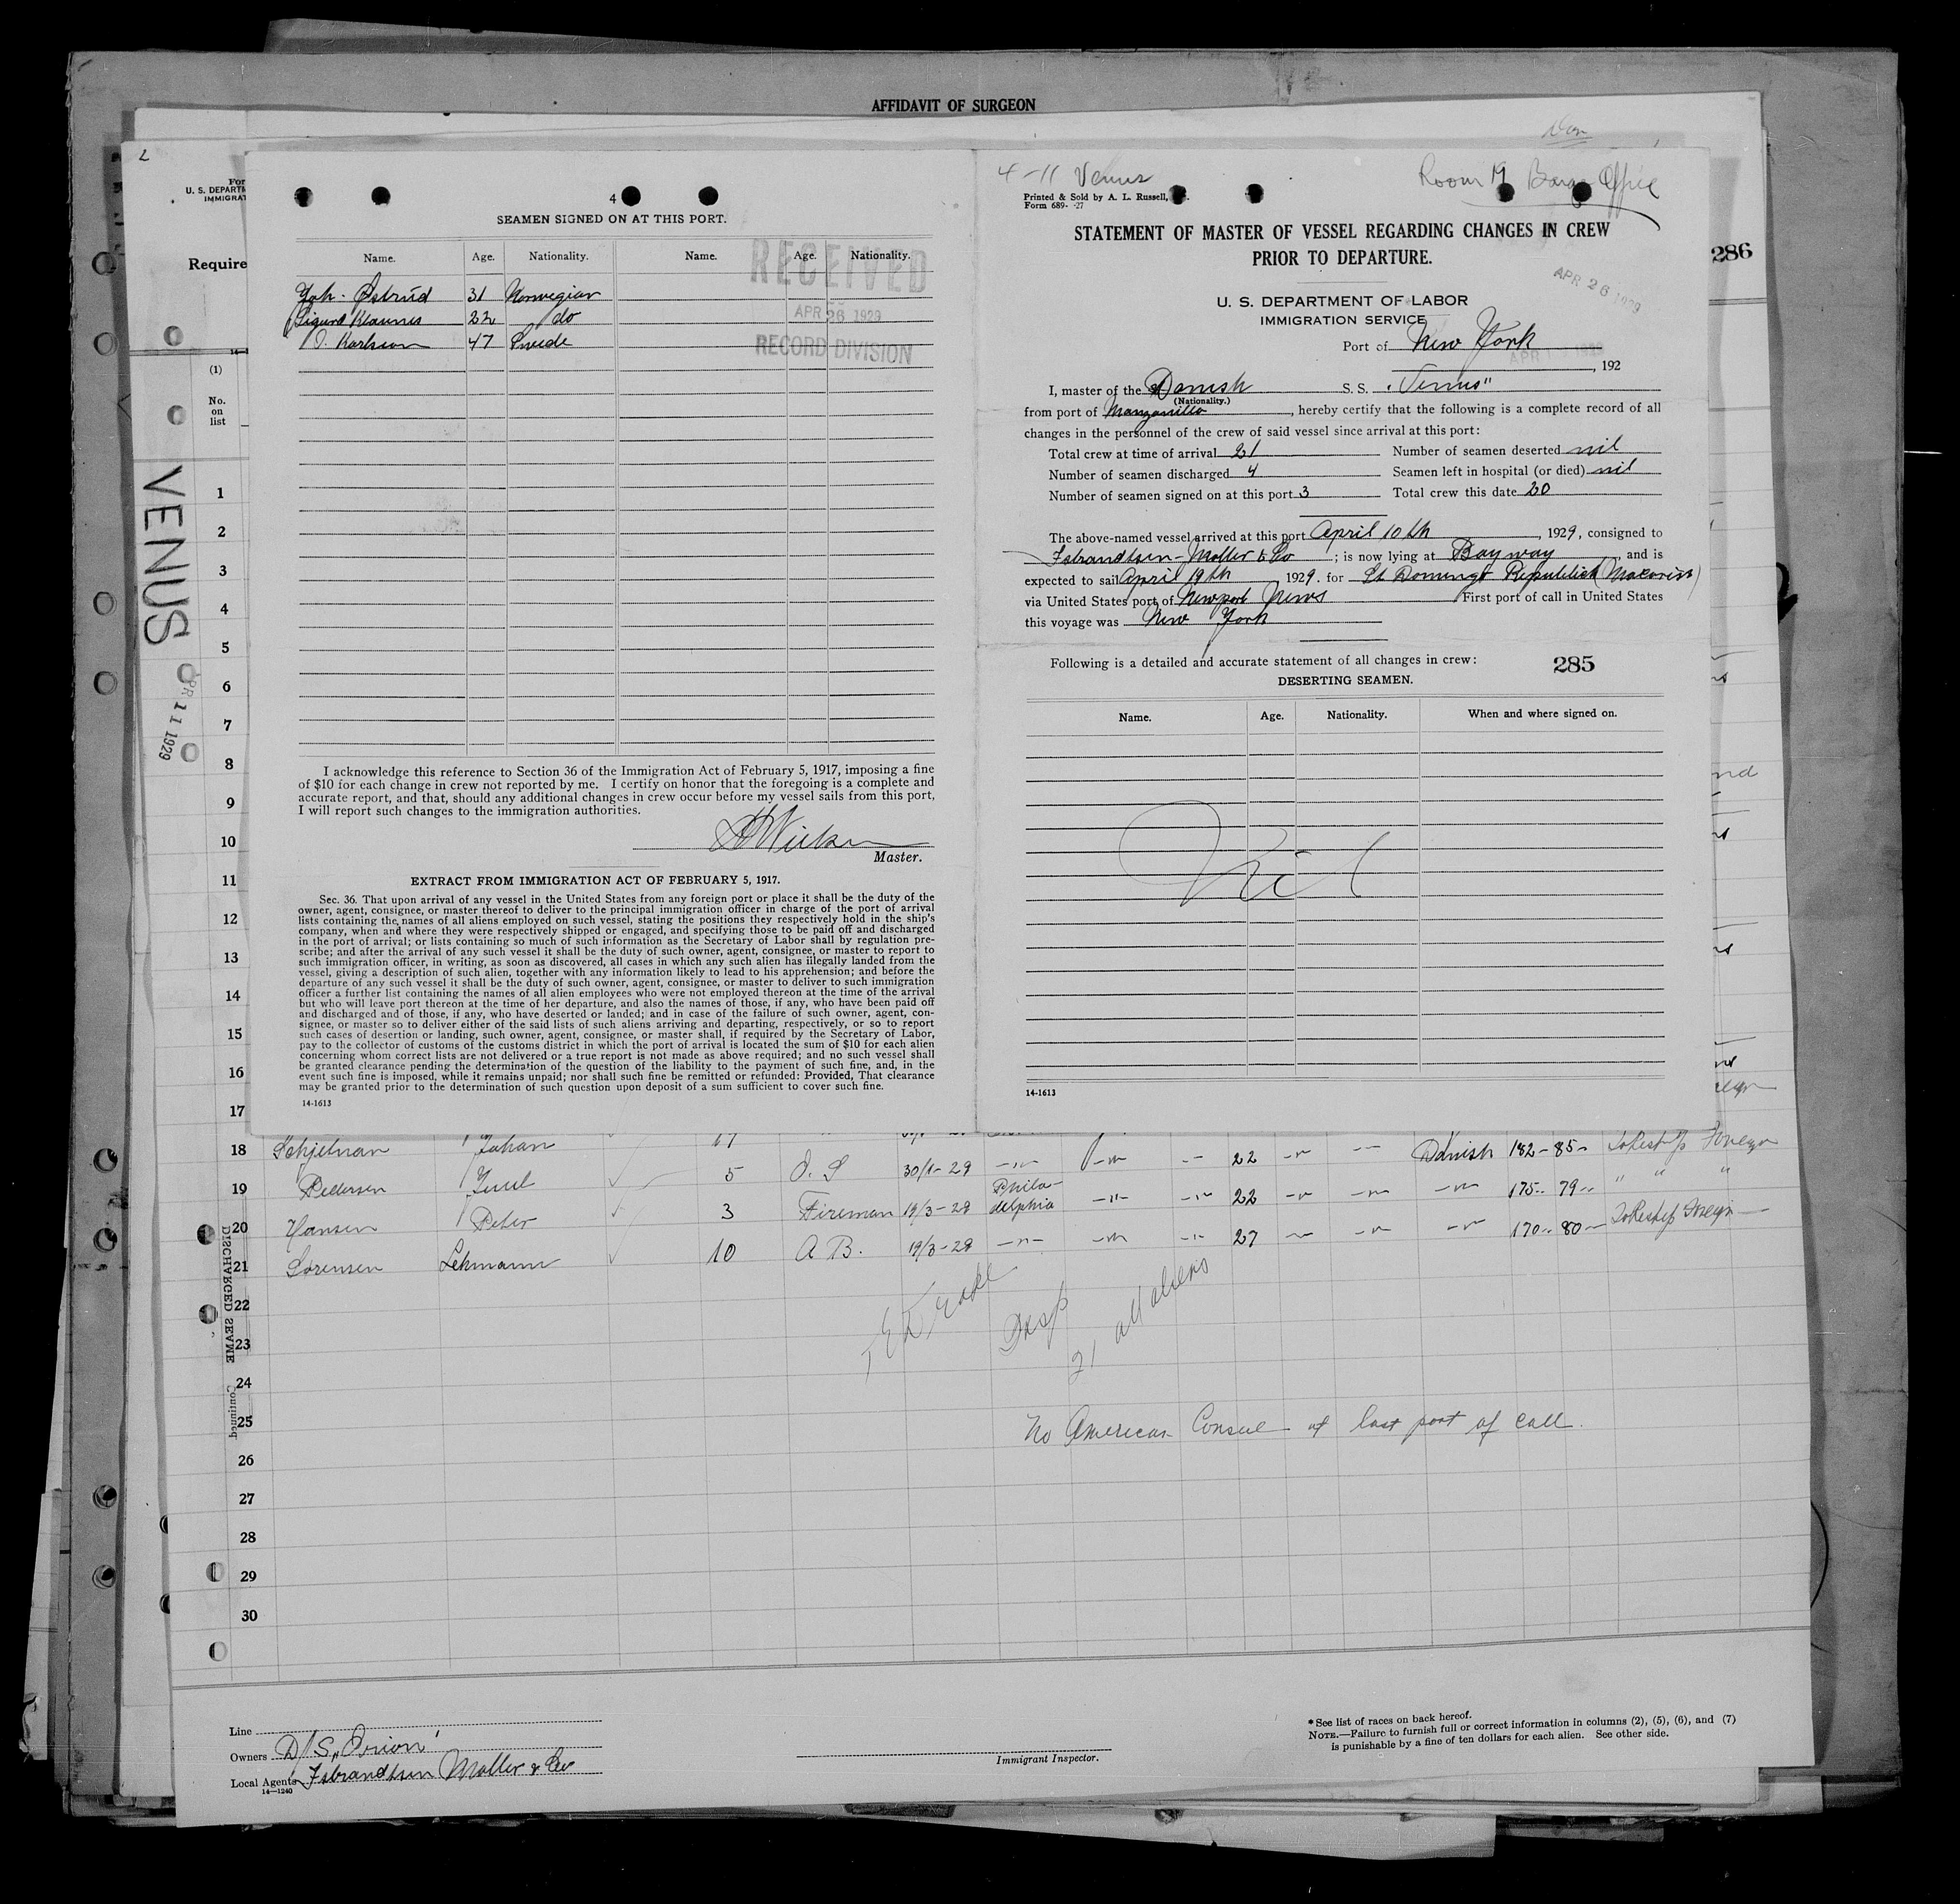 AFFIDAVIT OF SURGEON
2
For
U. S. DEPARTM
IMMIGRAT
Require
(1)
No.
on
list
VENUS
APR 11 1929
4
SEAMEN SIGNED ON AT THIS PORT.
Name. Age. Nationality. Name. Age. Nationality.
Joh. Østrud 31 Norwegian
Sigurd 22 do
O. Karlsson 47 Swede
RECEIVED
APR 26 1929
RECORD DIVISION
I acknowledge this reference to Section 36 of the Immigration Act of February 5, 1917, imposing a fine
of $10 for each change in crew not reported by me. I certify on honor that the foregoing is a complete and
accurate report, and that, should any additional changes in crew occur before my vessel sails from this port,
I will report such changes to the immigration authorities.
Master.
EXTRACT FROM IMMIGRATION ACT OF FEBRUARY 5, 1917.
Sec. 36. That upon arrival of any vessel in the United States from any foreign port or place it shall be the duty of the
owner, agent, consignee, or master thereof to deliver to the principal immigration officer in charge of the port of arrival
lists containing the names of all aliens employed on such vessel, stating the positions they respectively hold in the ship's
company, when and where they were respectively shipped or engaged, and specifying those to be paid off and discharged
in the port of arrival; or lists containing so much of such information as the Secretary of Labor shall by regulation pre-
scribe; and after the arrival of any such vessel it shall be the duty of such owner, agent, consignee, or master to report to
such immigration officer, in writing, as soon as discovered, all cases in which any such alien has illegally landed from the
vessel, giving a description of such alien, together with any information likely to lead to his apprehension; and before the
departure of any such vessel it shall be the duty of such owner, agent, consignee, or master to deliver to such immigration
officer a further list containing the names of all alien employees who were not employed thereon at the time of the arrival
but who will leave port thereon at the time of her departure, and also the names of those, if any, who have been paid off
and discharged and of those, if any, who have deserted or landed; and in case of the failure of such owner, agent, con-
signee, or master so to deliver either of the said lists of such aliens arriving and departing, respectively, or so to report
such cases of desertion or landing, such owner, agent, consignee, or master shall, if required by the Secretary of Labor,
pay to the collector of customs of the customs district in which the port of arrival is located the sum of $10 for each alien
concerning whom correct lists are not delivered or a true report is not made as above required; and no such vessel shall
be granted clearance pending the determination of the question of the liability to the payment of such fine, and, in the
event such fine is imposed, while it remains unpaid; nor shall such fine be remitted or refunded: Provided, That clearance
may be granted prior to the determination of such question upon deposit of a sum sufficient to cover such fine.
14-1613
4-11 Venus
Room 19 Barge Office
Printed & Sold by A. L. Russell,
Form 689- -27
STATEMENT OF MASTER OF VESSEL REGARDING CHANGES IN CREW
PRIOR TO DEPARTURE.
286
APR 26 1929
U. S. DEPARTMENT OF LABOR
IMMIGRATION SERVICE
Port of New York
, 192
I, master of the Danish S. S. "Venus"
(Nationality.)
from port of Manzanillo, hereby certify that the following is a complete record of all
changes in the personnel of the crew of said vessel since arrival at this port:
Total crew at time of arrival 21 Number of seamen deserted nil
Number of seamen discharged 4 Seamen left in hospital (or died) nil
Number of seamen signed on at this port 3 Total crew this date 20
The above-named vessel arrived at this port April 10th, 1929, consigned to
Isbrandtsen-Moller & Co; is now lying at Bayway, and is
expected to sail April 19th 1929. for St Domingo Republick (Macoris)
via United States port of Newport News First port of call in United States
this voyage was New York
Following is a detailed and accurate statement of all changes in crew:
285
DESERTING SEAMEN.
Name. Age. Nationality. When and where signed on.
Nil
14-1613
1
2
3
4
5
6
7
8
9
10
11
12
13
14
15
16
17
18 Schjelman Johan
19 Pedersen Juul 5 O. S 30/1-29 -"- -"- -- 22 -"- -- Danish 182-85- To Reship Foreign
20 Hansen Peter 3 Fireman 19/3-29 Phila-delphia -"- -"- 22 -"- -"- -"- 175-79- " "
21 Sorensen Lehmann 10 A B. 19/3-29 -"- -"- -"- 27 -"- -"- -"- 170-80- To Reship Foreign
22
23
24
25
26
27
28
29
30
DISCHARGED SEAME Continued
21 all aliens
No American Consul at last port of call.
Line
Owners D/S "Orion"
Local Agents Isbrandtsen Moller & Co
14-1240
Immigrant Inspector.
*See list of races on back hereof.
NOTE.—Failure to furnish full or correct information in columns (2), (5), (6), and (7)
is punishable by a fine of ten dollars for each alien. See other side.